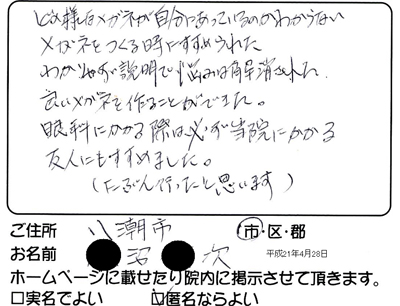 どの様なメガネが自分にあっているのかわからない
メガネをつくる時にすすめられた
わかりやすい説明で悩みは解消された
良いメガネを作ることができた。
眼科にかかる際は必ず当院にかかる
友人にもすすめました。
(たぶん行ったと思います)
ご住所 八潮市 市・区・郡
お名前 沼 次 平成21年4月28日
ホームページに載せたり院内に掲示させて頂きます。
□実名でよい □匿名ならよい